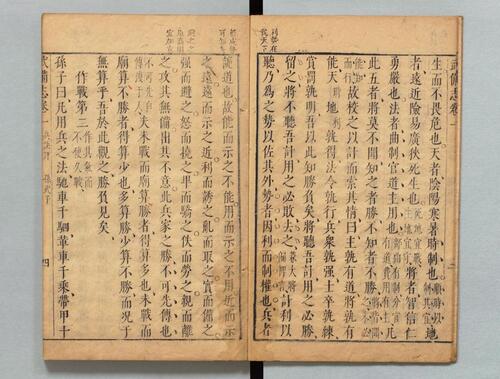 武備志卷一
生而不畏危也天者陰陽寒暑時制也順時以制其宜地
者遠近險易廣狹死生也地宜戰生地宜守將者智信仁
勇嚴也法者曲制官道主用也部曲有制分官有道費用有主凡
此五者將莫不聞知之者勝不知者不勝
能知故校之以計而索其情曰主孰有道將孰有
能天時地利孰得法令孰行兵衆孰強士卒孰練
賞罰孰明吾以此知勝負矣將聽吾計用之必勝
留之將不聽吾計用之必敗去之計利以
聽乃爲之勢以佐其外勢者因利而制權也兵者
詭道也故能而示之不能用而示之不用近而示
之遠遠而示之近利而誘之亂而取之實而備之
強而避之怒而撓之卑而驕之佚而勞之親而離
之攻其無備出其不意此兵家之勝不可先傳也
不可先傳于人夫未戰而廟算勝者得算多也未戰而
廟算不勝者得算少也多算勝少算不勝而況于
無算乎吾於此觀之勝負見矣
作戰第二作其氣而不使久戰
孫子曰凡用兵之法馳車千駟革車千乘帶甲十
武備志卷一 兵訣評 孫武子 四